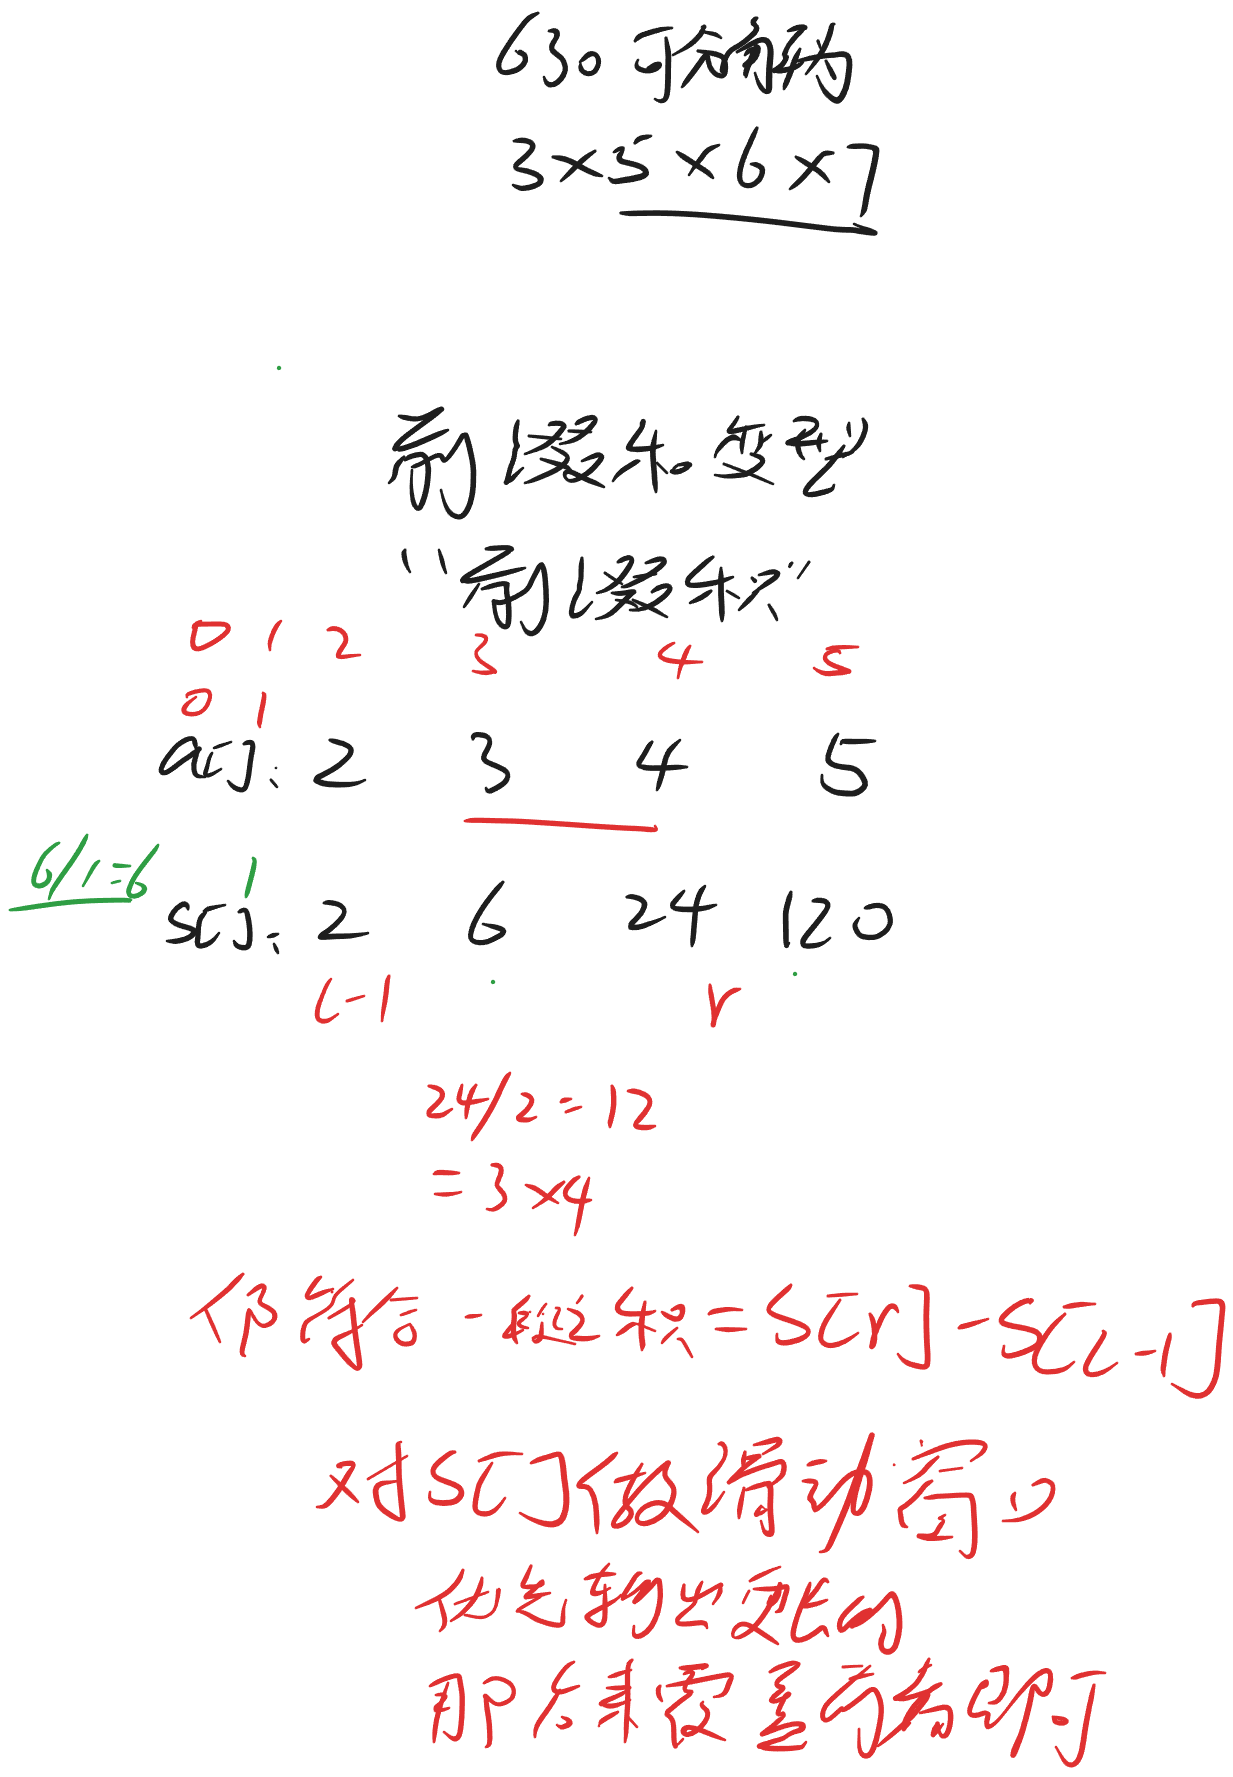 630 可分解为
3×5×6×7
前缀和变型
"前缀积"
0 1 2 3 4 5
0 1
a[]: 2 3 4 5
6/1=6 1
s[]: 2 6 24 120
l-1 r
24/2=12
=3×4
仍符合一段积=S[r]-S[l-1]
对S[]做滑动窗口
优先输出更长的
那后来覆盖前者即可